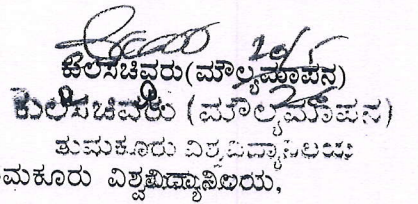 20/5
ಕುಲಸಚಿವರು(ಮೌಲ್ಯಮಾಪನ)
ಕುಲಸಚಿವರು (ಮೌಲ್ಯಮಾಪನ)
ತುಮಕೂರು ವಿಶ್ವವಿದ್ಯಾನಿಲಯ
ಮಕೂರು ವಿಶ್ವವಿದ್ಯಾನಿಲಯ,